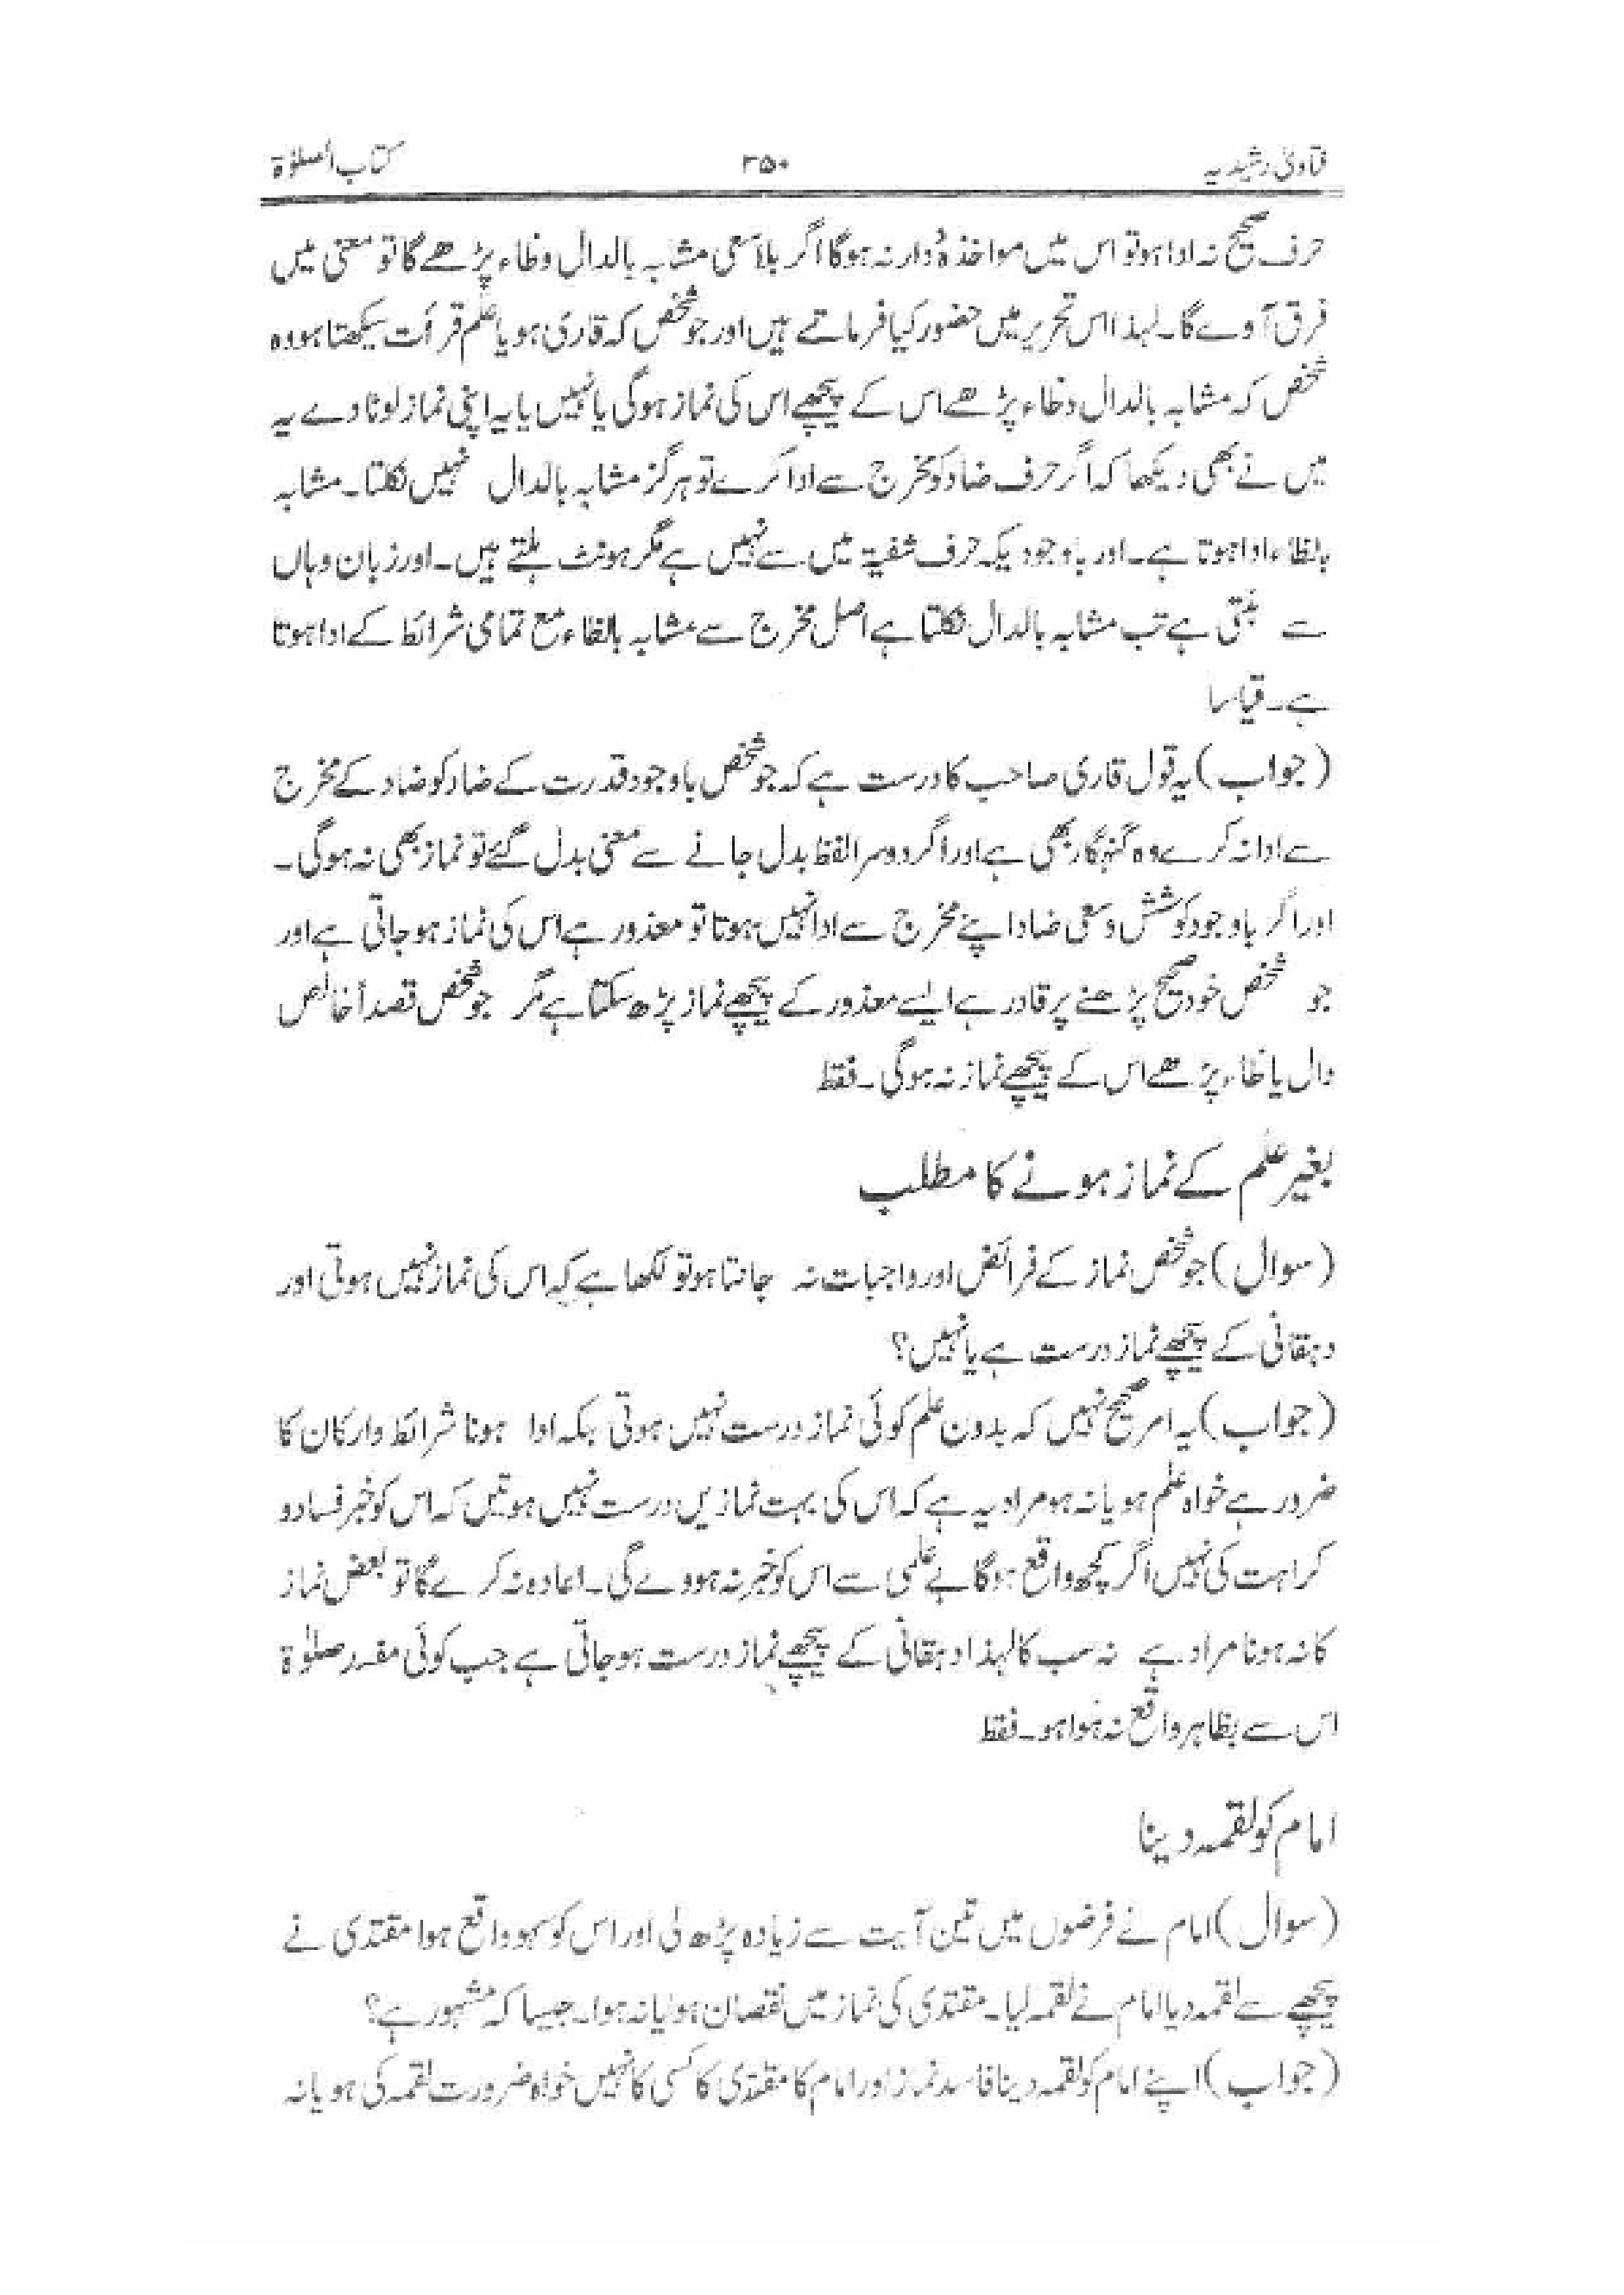 فتاویٰ رشیدیہ ۳۵۰ کتاب الصلوٰۃ
حرف صحیح نہ ادا ہو تو اس میں مواخذہ دار نہ ہوگا اگر بلا سعی مشابہ بالدال وظاء پڑھے گا تو معنی میں
فرق آوے گا۔ لہذا اس تحریر میں حضور کیا فرماتے ہیں اور جو شخص کہ قاری ہو یا علم قرأت سیکھتا ہو وہ
شخص کہ مشابہ بالدال وظاء پڑھے اس کے پیچھے اس کی نماز ہوگی یا نہیں یا یہ اپنی نماز لوٹا دے یہ
میں نے بھی دیکھا کہ اگر حرف ضاد کو مخرج سے ادا کرے تو ہرگز مشابہ بالدال نہیں نکلتا۔ مشابہ
بالظاء ادا ہوتا ہے۔ اور باوجودیکہ حرف شفیۃ میں سے نہیں ہے مگر ہونٹ ہلتے ہیں۔ اور زبان وہاں
سے ہٹتی ہے تب مشابہ بالدال نکلتا ہے اصل مخرج سے مشابہ بالظاء مع تمامی شرائط کے ادا ہوتا
ہے۔ قیاسا
(جواب) یہ قول قاری صاحب کا درست ہے کہ جو شخص باوجود قدرت کے ضاد کو ضاد کے مخرج
سے ادا نہ کرے وہ گنہگار بھی ہے اور اگر دوسرا لفظ بدل جانے سے معنی بدل گئے تو نماز بھی نہ ہوگی۔
اور اگر باوجود کوشش وسعی ضاد اپنے مخرج سے ادا نہیں ہوتا تو معذور ہے اس کی نماز ہو جاتی ہے اور
جو شخص خود صحیح پڑھنے پر قادر ہے ایسے معذور کے پیچھے نماز پڑھ سکتا ہے مگر جو شخص قصداً خالص
دال یا ظاء پڑھے اس کے پیچھے نماز نہ ہوگی۔ فقط
بغیر علم کے نماز ہونے کا مطلب
(سوال) جو شخص نماز کے فرائض اور واجبات نہ جانتا ہو تو لکھا ہے کہ اس کی نماز نہیں ہوتی اور
دہقانی کے پیچھے نماز درست ہے یا نہیں؟
(جواب) یہ امر صحیح نہیں کہ بدون علم کوئی نماز درست نہیں ہوتی بلکہ ادا ہونا شرائط وارکان کا
ضرور ہے خواہ علم ہو یا نہ ہو مراد یہ ہے کہ اس کی بہت نمازیں درست نہیں ہوتیں کہ اس کو خبر فساد و
کراہت کی نہیں اگر کچھ واقع ہوگا بے علمی سے اس کو خبر نہ ہووے گی۔ اعادہ نہ کرے گا تو بعض نماز
کا نہ ہونا مراد ہے نہ سب کا لہذا دہقانی کے پیچھے نماز درست ہو جاتی ہے جب کوئی مفسد صلوٰۃ
اس سے بظاہر واقع نہ ہوا ہو۔ فقط
امام کو لقمہ دینا
(سوال) امام نے فرضوں میں تین آیت سے زیادہ پڑھ لی اور اس کو سہو واقع ہوا مقتدی نے
پیچھے سے لقمہ دیا امام نے لقمہ لیا۔ مقتدی کی نماز میں نقصان ہوا یا نہ ہوا۔ جیسا کہ مشہور ہے؟
(جواب) اپنے امام کو لقمہ دینا فاسد نماز اور امام کا مقتدی کا کسی کا نہیں خواہ ضرورت لقمہ کی ہو یا نہ